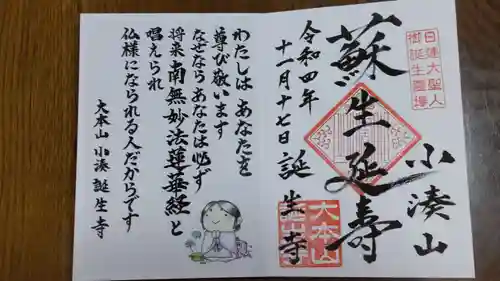 日蓮大聖人
御誕生霊場
小湊山
蘇生延寿
令和四年
十一月十七日 誕生寺
大本山
誕生寺
わたしは あなたを
尊び敬います
なぜなら あなたは必ず
将来 南無妙法蓮華経 と
唱えられ
仏様になられる人だからです
大本山 小湊 誕生寺